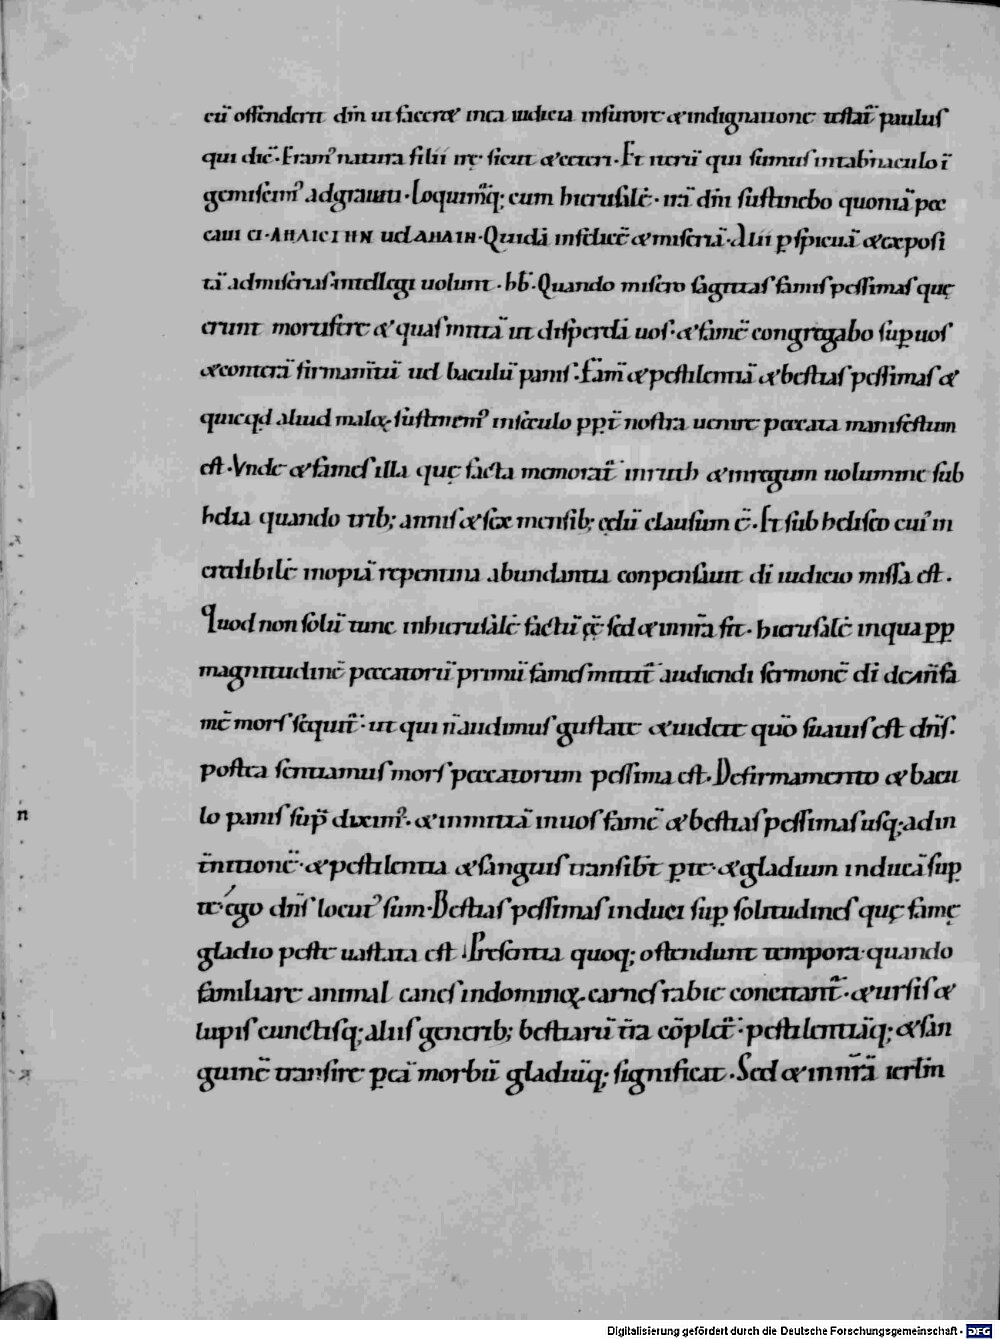 cū offenderit dn̄m ut faceret in ea iudicia in furore et indignatione testat̄ paulus
qui dic̄. Eram' natura filii irę sicut et ceteri. Et iterū qui sumus in tabernaculo ī
gemiscim' adgrauati. Loquim̄q; cum hierusalē. irā dn̄i sustinebo quoniā pec
caui ei.
Quidā infelicē et miserā. Alii p̱spicuā et exposi
tā ad miserias intellegi uolunt. hb̄. Quando misero sagittas famis pessimas quę
erunt mortifere et quas mittā ut disperdā uos. et famē congregabo sup̱ uos
et conterā firmam̄tū uel baculū panis. Famē et pestilentiā et bestias pessimas et
quicq̱d aliud maloꝝ sustinem' in sęculo pp̱t̄ nostra uenire peccata manifestum
est. Vnde et fames illa quę facta memorat̄ in ruth et in regum uolumine sub
helia quando trib; annis et sex mensib; cęlū clausum ē. Et sub heliseo cui' in
credibilē inopiā repentina abundantia conpensauit di iudicio missa est.
Quod non solū tunc in hierusalē factū ęē sed et in nr̄a fit. hierusalē in qua pp̱
magnitudinē peccatorū primū fames mittit̄ audiendi sermonē di deīn fa
mē mors sequit̄. ut qui n̄ audimus gustate et uidete quō suauis est dn̄s.
postea sentiamus mors peccatorum pessima est. De firmamento et bacu
lo panis sup̱ dixim'. et inmittā in uos famē et bestias pessimas usq; ad in
t̄nitionē. et pestilentia et sanguis transibt̄ p̱ te. et gladium inducā sup̱
te. ego dn̄s locut' sum. Bestias pessimas induci sup̱ solitudines quę fame
gladio peste uastata est. Pręsentia quoq; ostendunt tempora. quando
familiare animal canes in dominoꝝ carnes rabie concitant̄. et ursis et
lupis cunctisq; aliis generib; bestiarū t̄ra cōplet̄. pestilentiāq; et san
guinē transire p̱ eā morbū gladiūq; significat. Sed et in nr̄ā ierlm̄
n